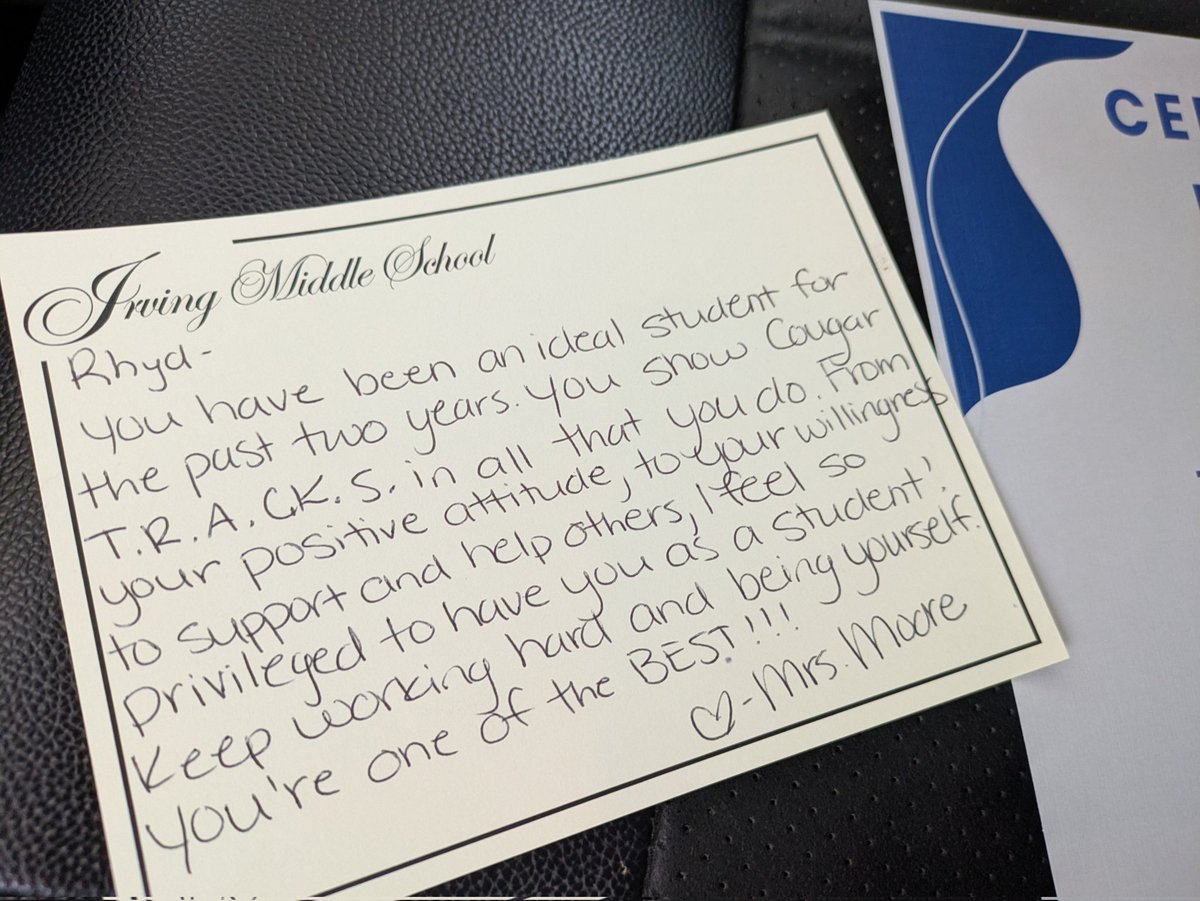 Irving Middle School
Rhyd-
You have been an ideal student for
the past two years. You show Cougar
T.R.A.C.K.S. in all that you do. From
your positive attitude, to your willingness
to support and help others, I feel so
privileged to have you as a student!
Keep working hard and being yourself.
You're one of the BEST!!!
♡-Mrs. Moore
CE